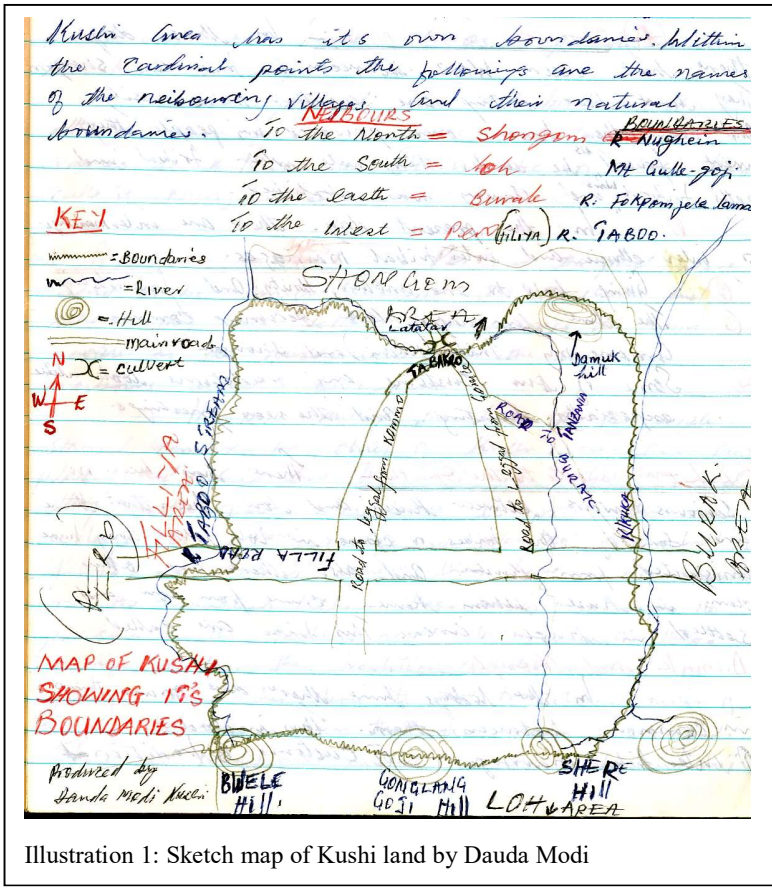 Kushi Area has it's own boundaries. Within
the Cardinal points the followings are the names
of the neibouring villages and their natural
boundaries.
NEIBOURS
BOUNDARIES
To the North = Shongom R Nughein
To the South = loh Mt Gulle-goji
To the easth = Burak R. Fokpomjela lama
To the West = Pero (FILIYA) R. TABOO.
KEY
= Boundaries
= River
= Hill
= main road
= culvert
N
W E
S
SHONGOM
AREA
Latatar
TABAKRO
Damuk
hill
ROAD TO BURAK
TANZANIA
Road to Leggal from Kommo
Road to Leggal from
Kikuka
FILLIYA
AREA
R TABOO STREAM
(PERO)
FILLA ROAD
BURAK
AREA
MAP OF KUSHI
SHOWING IT'S
BOUNDARIES
Produced by
Dauda Modi Kushi
BWELE
Hill.
GONGLANG
GOJI Hill
SHERE
Hill
LOH AREA
Illustration 1: Sketch map of Kushi land by Dauda Modi